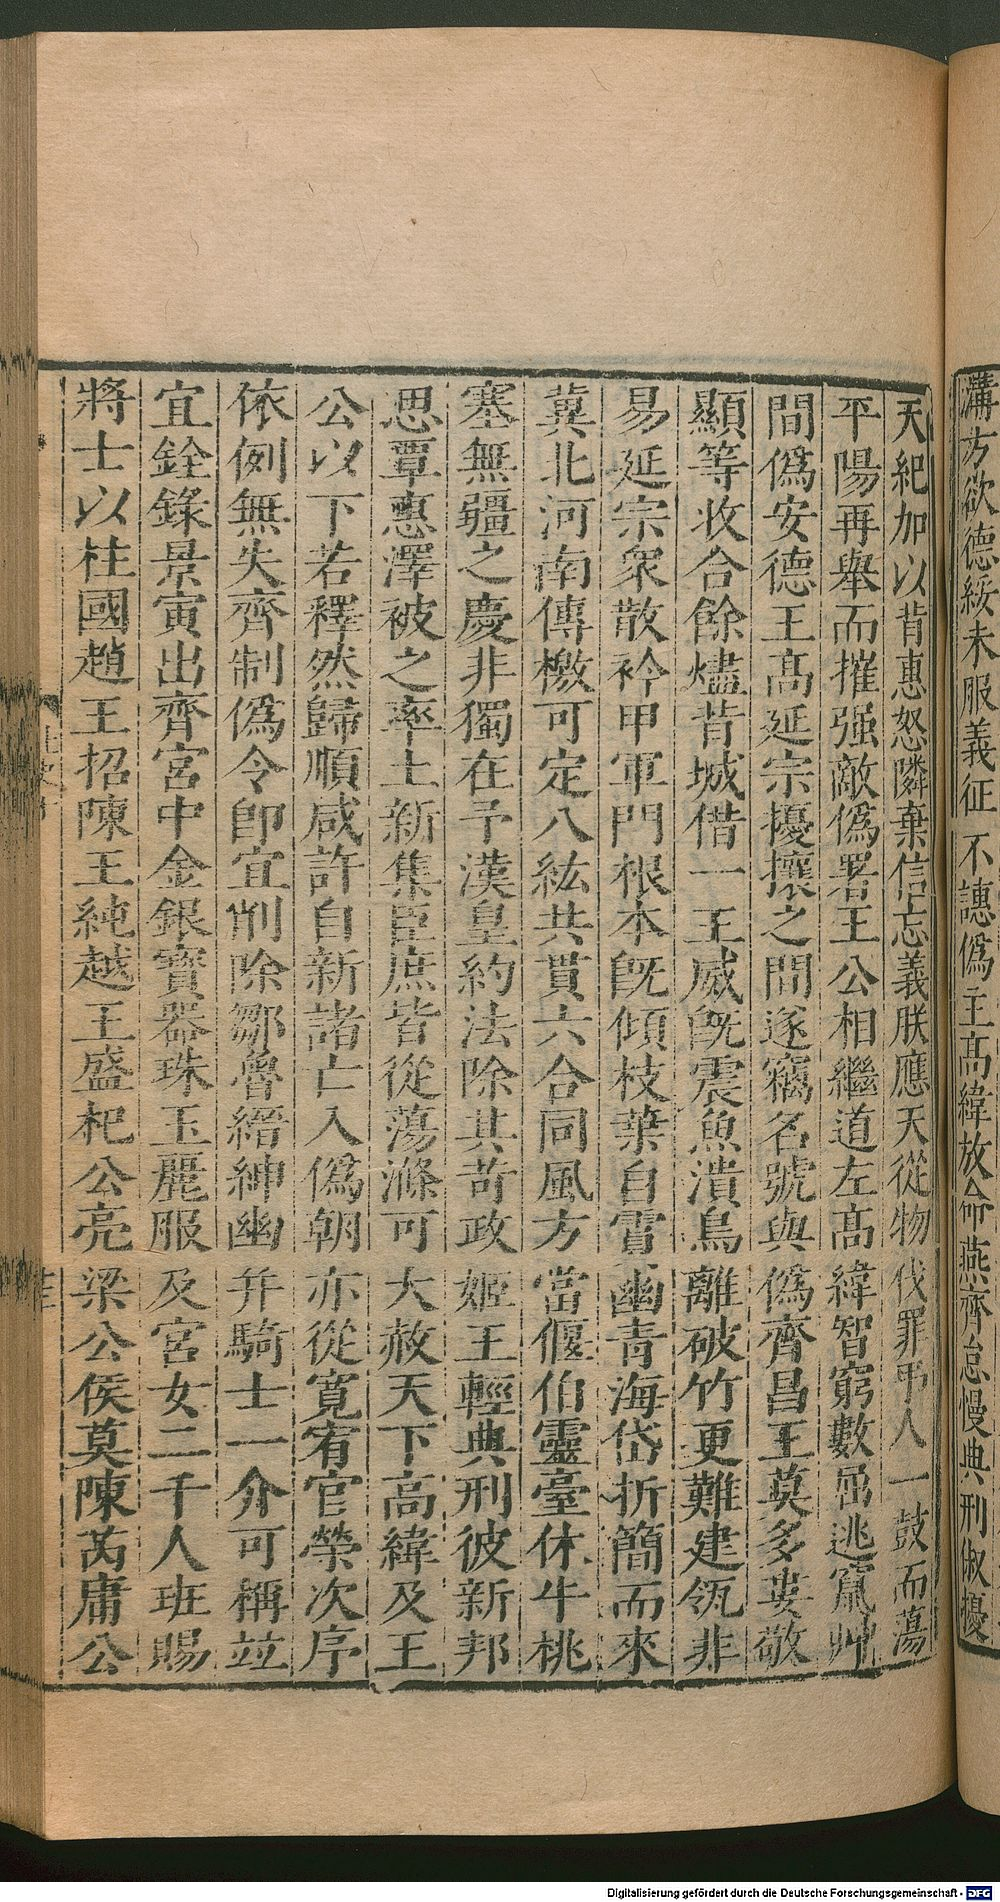 溝方欲德綏未服義征不譓偽主高緯放命燕齊怠慢典刑俶擾
天紀加以背惠怒隣棄信忘義朕應天從物伐罪弔人一鼓而蕩
平陽再舉而摧强敵偽署王公相繼道左高緯智窮數屈逃竄艸
間偽安德王高延宗擾攘之間遂竊名號與偽齊昌王莫多婁敬
顯等收合餘燼背城借一王威既震魚潰鳥離破竹更難建瓴非
易延宗衆散衿甲軍門根本既傾枝葉自霣幽青海岱折簡而來
冀北河南傳檄可定八紘共貫六合同風方當偃伯靈臺休牛桃
塞無疆之慶非獨在予漢皇約法除其苛政姬王輕典刑彼新邦
思覃惠澤被之率土新集臣庶皆從蕩滌可大赦天下高緯及王
公以下若釋然歸順咸許自新諸亡入偽朝亦從寛宥官榮次序
依例無失齊制偽令即宜削除鄒魯縉紳幽并騎士一介可稱竝
宜銓錄景寅出齊宮中金銀寶器珠玉麗服及宮女二千人班賜
將士以柱國趙王招陳王純越王盛杞公亮梁公侯莫陳芮庸公
Digitalisierung gefördert durch die Deutsche Forschungsgemeinschaft - DFG